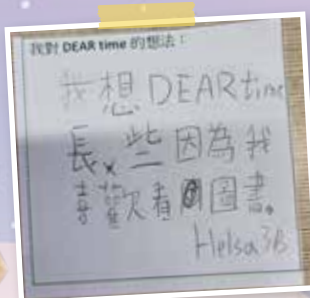 我對 DEAR time 的想法：
我想 DEAR time
長些因為我
喜歡看圖書。
Helsa 3B